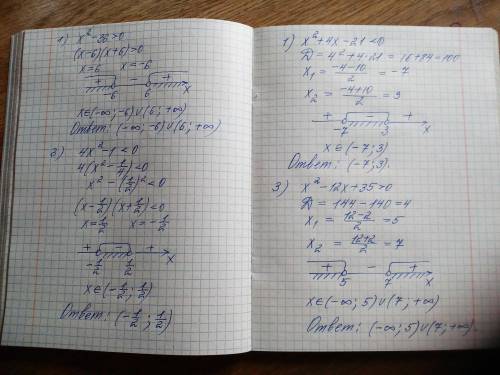 1) x² - 36 > 0
(x-6)(x+6) > 0
x=6 x=-6
+ - +
-6 6 x
x∈(-∞;-6)∪(6;+∞)
Ответ: (-∞;-6)∪(6;+∞)
2) 4x² - 1 < 0
4(x² - 1/4) < 0
x² - (1/2)² < 0
(x - 1/2)(x + 1/2) < 0
x = 1/2 x = -1/2
+ - +
-1/2 1/2 x
x∈(-1/2; 1/2)
Ответ: (-1/2; 1/2)
1) x² + 4x - 21 < 0
D = 4² + 4·21 = 16+84=100
x₁ = (-4-10)/2 = -7
x₂ = (-4+10)/2 = 3
+ - +
-7 3 x
x∈(-7;3)
Ответ: (-7;3).
3) x² - 12x + 35 > 0
D = 144 - 140 = 4
x₁ = (12-2)/2 = 5
x₂ = (12+2)/2 = 7
+ - +
5 7 x
x∈(-∞;5)∪(7;+∞)
Ответ: (-∞;5)∪(7;+∞).